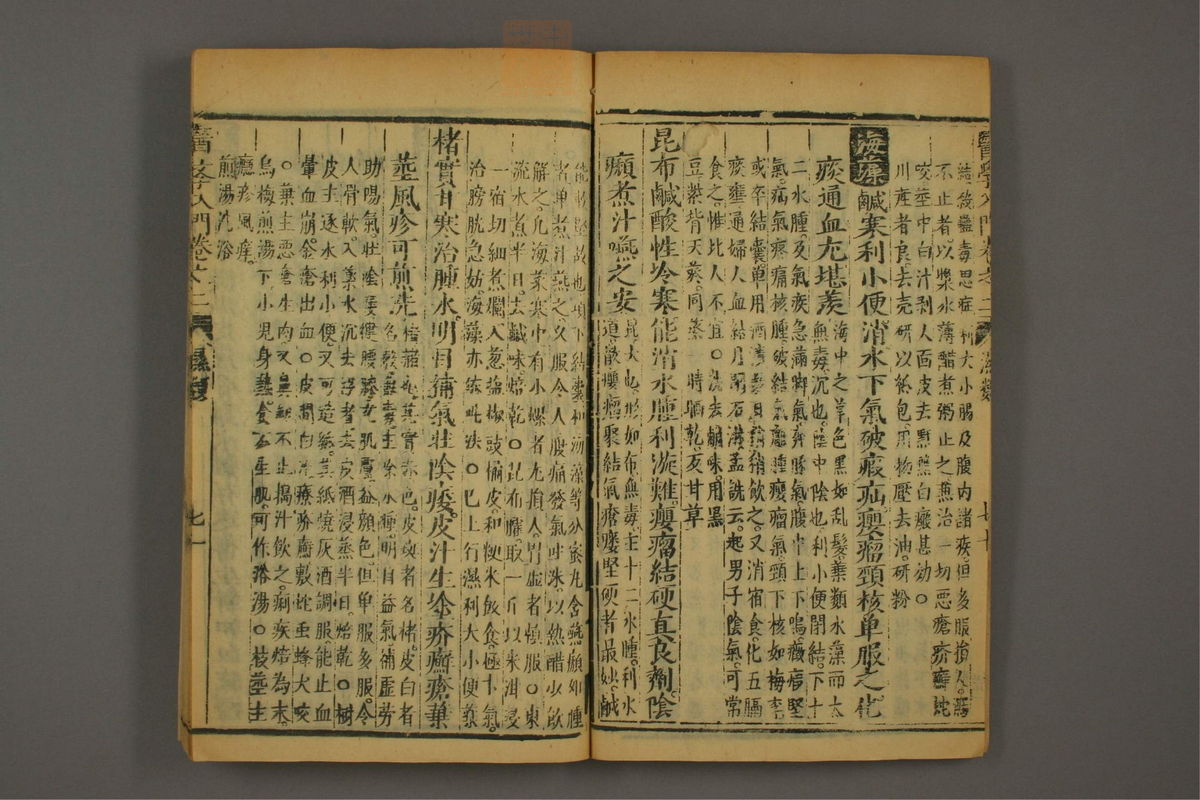 醫學入門卷之二 濕類 七十
結後蠱毒思症利大小腸及腹內諸疾但多服損人
不止者以漿水薄醋煮粥止之蕉治一切惡瘡疥癬蛇
咬莖中白汁剥人面皮去黑䵟白癜甚効○
川產者良去殼研以紙包用物壓去油研粉
海藻鹹寒利小便消水下氣破瘕疝癭瘤頸核單服之
痰通血尤堪羡海中之草色黑如乱髮葉類水藻而大
無毒沉也陰中陰也利小便閉結下十
二水腫及氣疾急滿脚氣奔豚氣腹中上下鳴癥瘕堅
氣病氣疼痛核腫破結氣癰腫癭瘤氣頸下核如梅李
或卒結囊單用酒漬數日稍稍飲之又消宿食化五膈
痰壅通婦人血結月閉石淋孟銑云起男子陰氣可常
食之惟北人不宜○洗去鹹味用黑
豆紫背天葵同蒸一時晒乾反甘草
昆布鹹酸性冷寒能消水腫利漩難癭瘤結硬真良劑陰
㿗煮汁嚥之安昆大也形如布無毒主十二水腫利水
道散癭瘤聚結氣瘡瘻堅硬者最妙鹹
者堙煮汁嚥之久服令人腹痛發氣吐沫以熱醋少飲
解之凡海菜寒中有小螺者尤損人胃虛者慎服○東
流水煮半日去鹹味焙乾○昆布臛取一斤以米泔浸
一宿切細煮爛入葱塩椒豉橘皮和粳米飯食極下氣
治膀胱急妨海藻亦依此法○巴上行濕利大小便藥
楮實甘寒治腫水明目補氣壯陰痿皮汁生塗疥癬瘡葉
莖風疹可煎洗
助陽氣壯陰痿健腰膝充肌膚益顏色但單服多服令
人骨軟入藥水沉去浮者去皮酒浸蒸半日焙乾○樹
皮主逐水利小便又可造紙其紙燒灰酒調服能止血
暈血崩金瘡出血○皮間白汁療疥癬敷蛇虫蜂犬咬
○葉主惡瘡生肉又鼻衂不止搗汁飲之痢疾焙為末
烏梅煎湯下小兒身熱食不生肌可作浴湯○枝莖主
癮疹風痒
煎湯洗浴
醫學入門卷之二
七十一